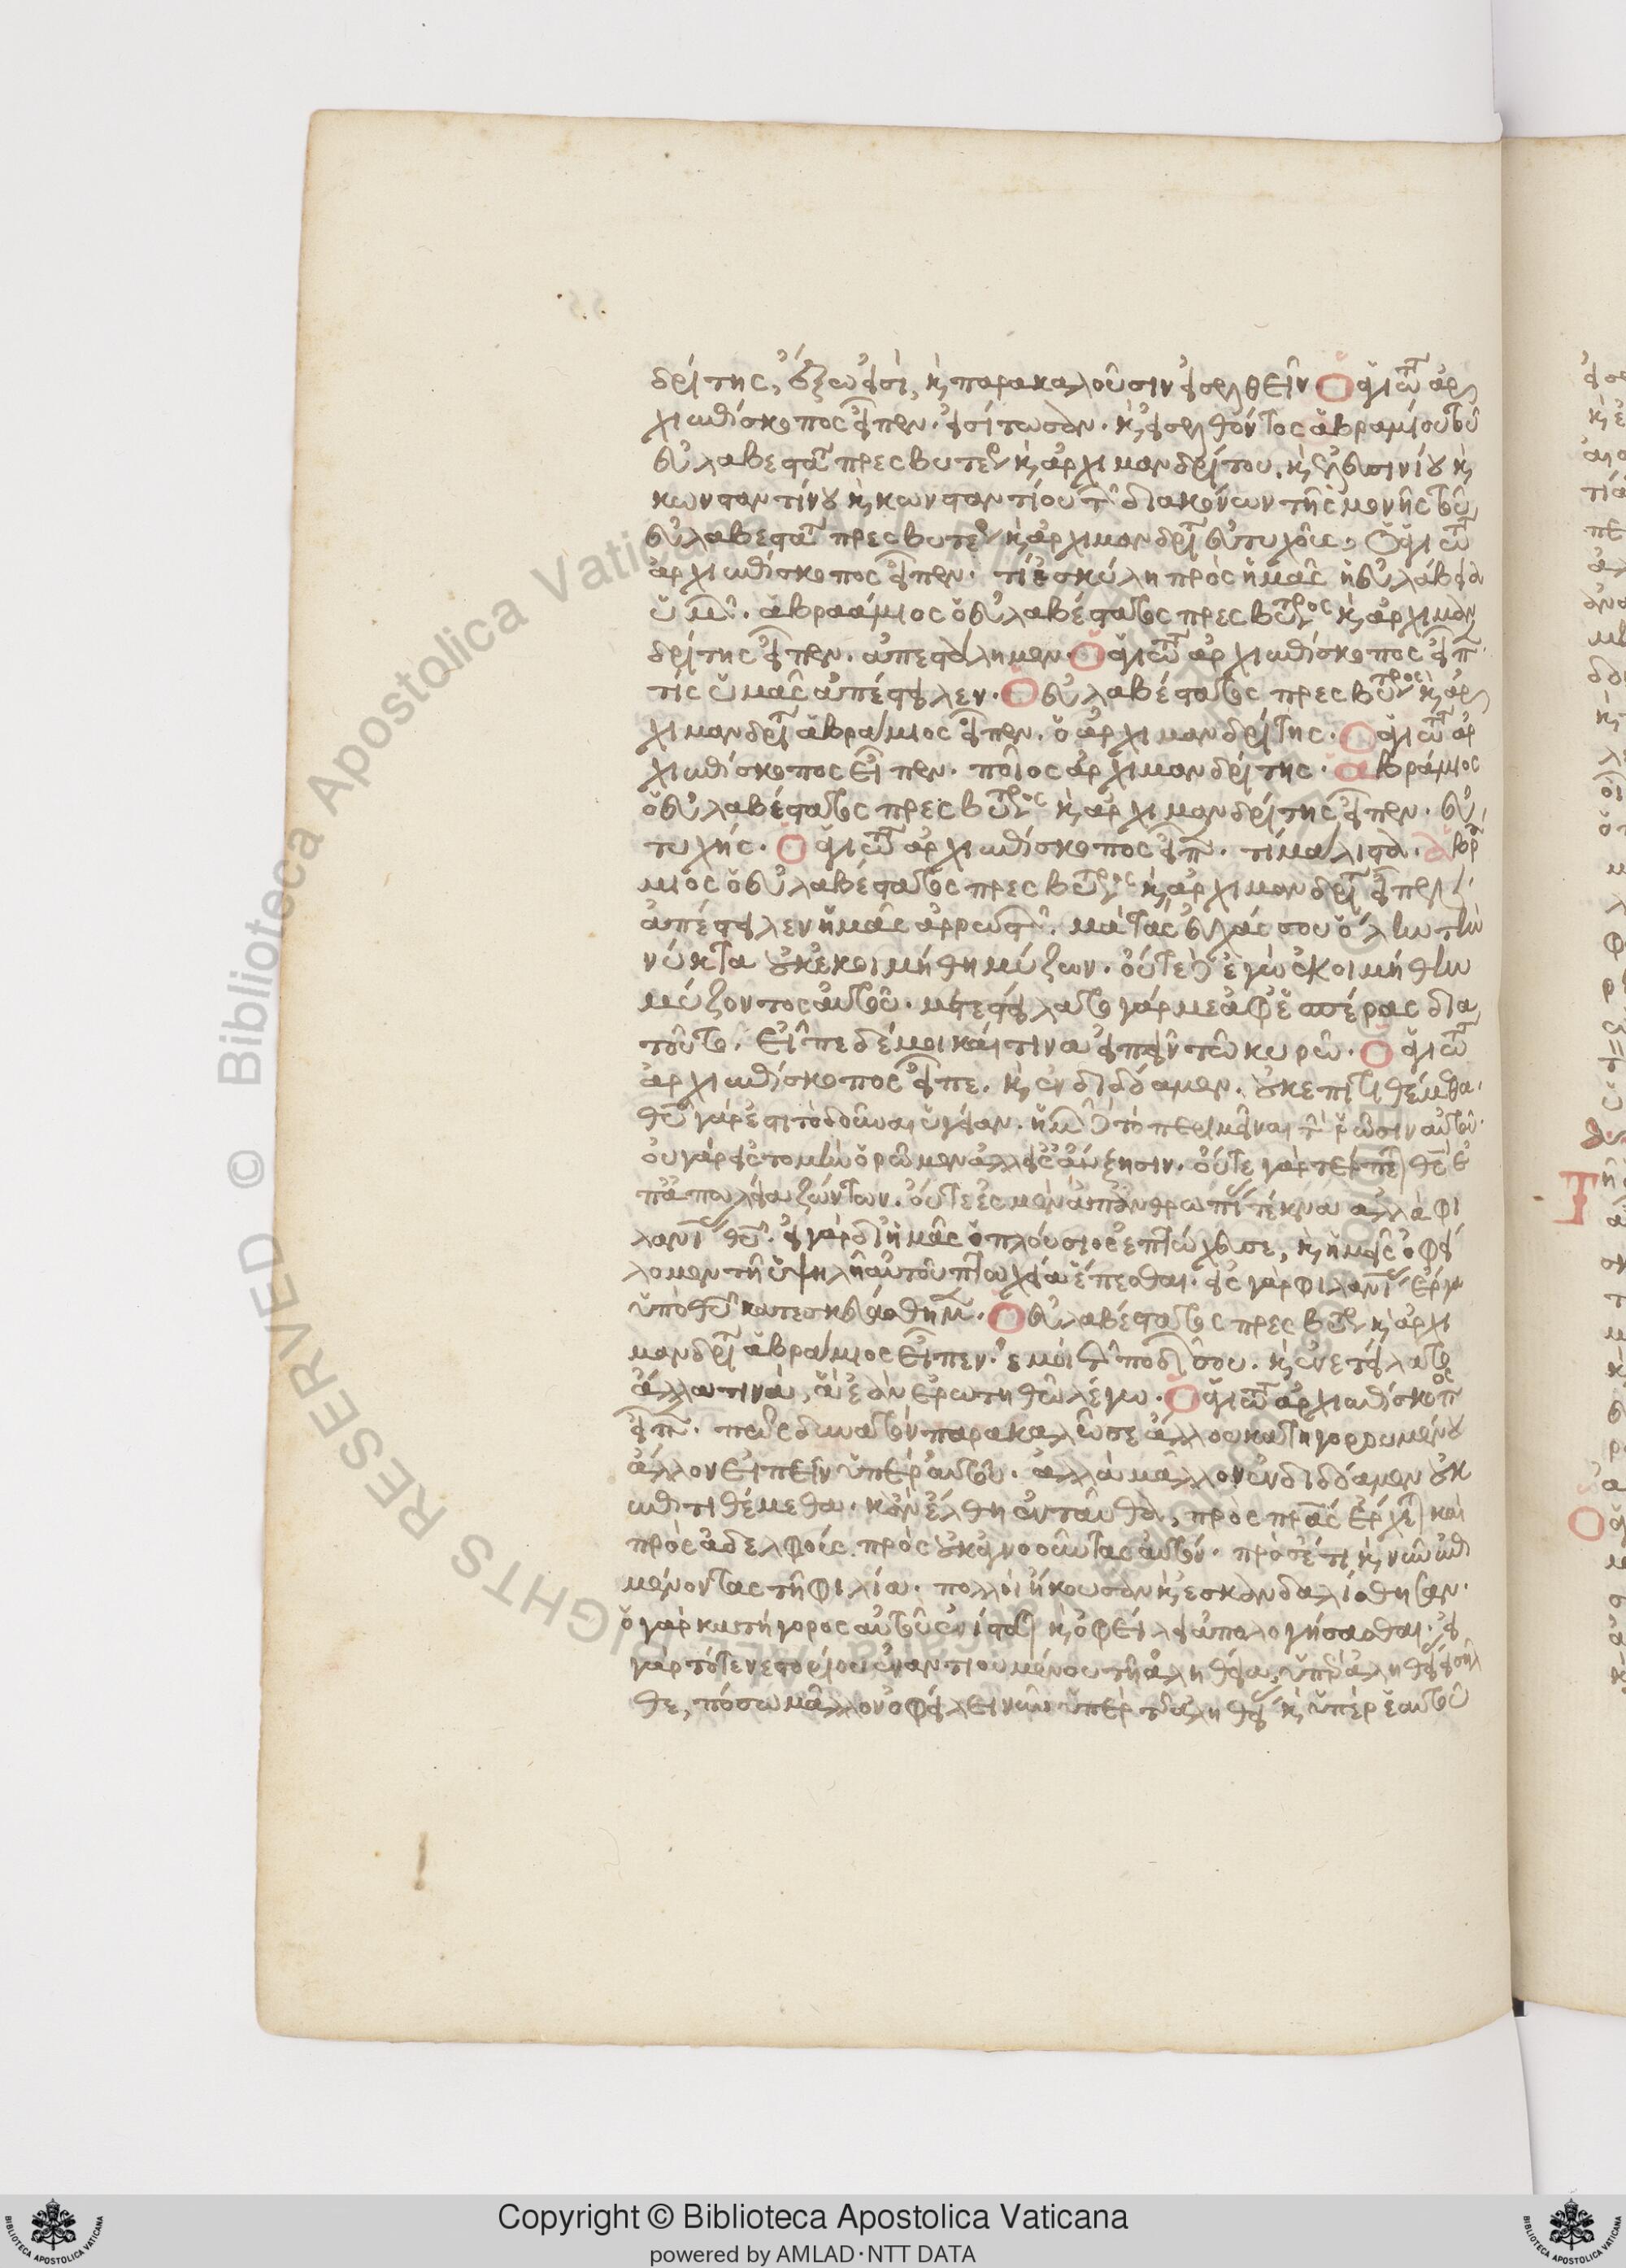 δρίτης, ἔξω εἰσὶ, καὶ παρακαλοῦσιν εἰσελθεῖν. Ὁ ἁγιώτατος ἀρ
χιεπίσκοπος εἶπεν. εἰσίτωσαν. καὶ εἰσελθόντος ἀβραμίου τοῦ
εὐλαβεστάτου πρεσβυτέρου καὶ ἀρχιμανδρίτου. καὶ ἐλευσινίου καὶ
κωνσταντίνου καὶ κωνσταντίου τῶν διακόνων τῆς μονῆς τοῦ
εὐλαβεστάτου πρεσβυτέρου καὶ ἀρχιμανδρίτου εὐτυχοῦς, Ὁ ἁγιώτατος
ἀρχιεπίσκοπος εἶπεν. τί ἐσκύλη πρὸς ἡμᾶς ἡ εὐλάβεια
ὑμῶν. ἀβραάμιος ὁ εὐλαβέστατος πρεσβύτερος καὶ ἀρχιμαν
δρίτης εἶπεν. ἀπεστάλημεν. Ὁ ἁγιώτατος ἀρχιεπίσκοπος εἶπεν
τίς ὑμᾶς ἀπέστειλεν. Ὁ εὐλαβέστατος πρεσβύτερος καὶ ἀρ
χιμανδρίτης ἀβράμιος εἶπεν. ὁ ἀρχιμανδρίτης. Ὁ ἁγιώτατος ἀρ
χιεπίσκοπος εἶπεν. ποῖος ἀρχιμανδρίτης. ἀβράμιος
ὁ εὐλαβέστατος πρεσβύτερος καὶ ἀρχιμανδρίτης εἶπεν. εὐ
τυχής. Ὁ ἁγιώτατος ἀρχιεπίσκοπος εἶπεν. τί μάλιστα. ἀβρά
μιος ὁ εὐλαβέστατος πρεσβύτερος καὶ ἀρχιμανδρίτης εἶπεν
ἀπέστειλεν ἡμᾶς ἀρρωστῶν. μὰ τὰς εὐχάς σου ὅλην τὴν
νύκτα οὐκ ἐκοιμήθη μύζων. οὔτε δὲ ἐγὼ ἐκοιμήθην
μύζοντος αὐτοῦ. μετεστείλατο γάρ με ἀφ' ἑσπέρας δια
τοῦτο. εἶπε δέ μοι καί τινα εἰπεῖν τῷ κυρῷ. Ὁ ἁγιώτατος
ἀρχιεπίσκοπος εἶπε. καὶ ἐνδιδόαμεν. οὐκ ἐπιτιθέμεθα.
θεοῦ γάρ ἐστι τὸ δοῦναι ὑγείαν. ἡμῶν δὲ τὸ περιμεῖναι τὴν ῥῶσιν αὐτοῦ.
οὐ γὰρ εἰς τομὴν ὁρῶμεν ἀλλ' εἰς αὔξησιν. οὔτε γὰρ τέρπεται θεὸς ἐπ'
ἀπωλείᾳ ζώντων. οὔτε ἐσμὲν ἀπανθρωπίας τέκνα ἀλλὰ φι
λανθρωπίας θεοῦ. εἰ γὰρ δι' ἡμᾶς ὁ πλούσιος ἐπτώχευσε, καὶ ἡμεῖς ὀφεί
λομεν τῇ ὑψηλῇ αὐτοῦ πτωχείᾳ ἕπεσθαι. εἰς γὰρ φιλανθρωπίας ἔργα
ὑπὸ θεοῦ κατεσκευάσθημεν. Ὁ εὐλαβέστατος πρεσβύτερος καὶ ἀρχι
μανδρίτης ἀβράμιος εἶπεν. ἐμοὶ τῶν ποδῶν σου. καὶ ἐνετείλατο
ἄλλα τινὰ, ἃ ἐὰν ἐρωτηθῶ λέγω. Ὁ ἁγιώτατος ἀρχιεπίσκοπος
εἶπεν. πῶς δυνατὸν παρακαλῶ σε ἄλλου κατηγορουμένου
ἄλλον εἰπεῖν ὑπὲρ αὐτοῦ. ἀλλὰ μᾶλλον ἐνδιδόαμεν οὐκ
ἐπιτιθέμεθα. κἂν ἔλθῃ ἐνταῦθα, πρὸς πατέρας ἔρχεται καὶ
πρὸς ἀδελφούς. πρὸς οὐκ ἀγνοοῦντας αὐτόν. πρὸς ἔτι καὶ νῦν ἐπι
μένοντας τῇ φιλίᾳ. πολλοὶ ἤκουσαν καὶ ἐσκανδαλίσθησαν.
ὁ γὰρ κατήγορος αὐτοῦ ἐνίσταται καὶ ὀφείλει ἀπολογήσασθαι. εἰ
γὰρ τότε νεστορίου ἐναντιουμένου τῇ ἀληθείᾳ, ὑπὲρ ἀληθείας εἰσῆλ
θε, πόσῳ μᾶλλον ὀφείλει νῦν ὑπὲρ τῆς ἀληθείας καὶ ὑπὲρ ἑαυτοῦ
Copyright © Biblioteca Apostolica Vaticana
powered by AMLAD·NTT DATA